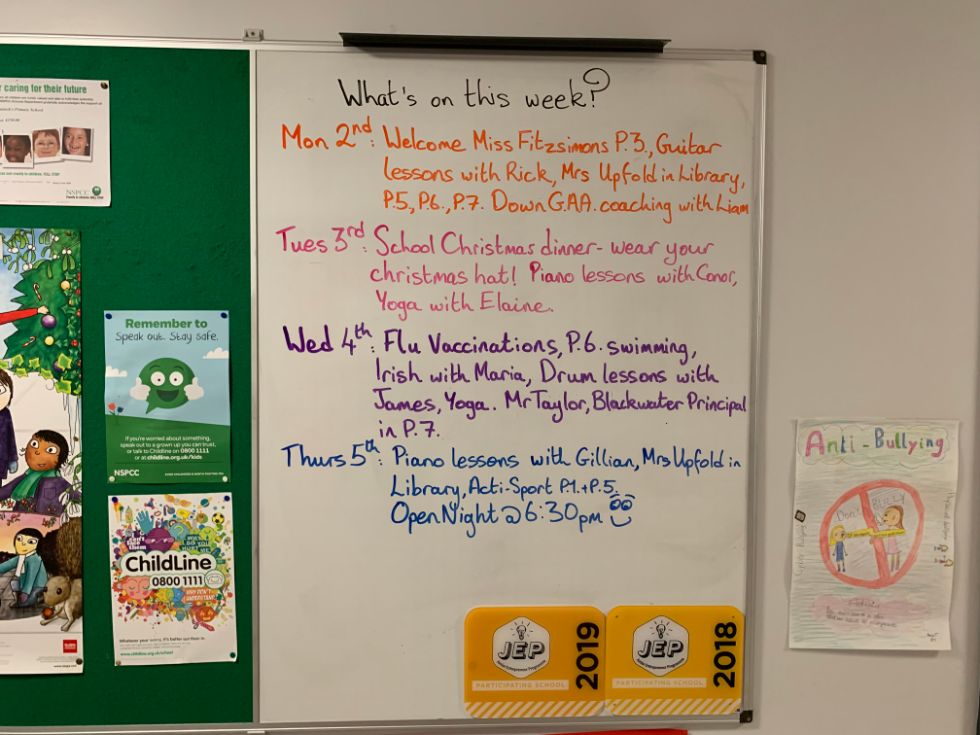 What's on this week?
Mon 2nd: Welcome Miss Fitzsimons P.3., Guitar
lessons with Rick, Mrs Upfold in Library,
P.5., P.6., P.7. Down G.A.A. coaching with Liam
Tues 3rd: School Christmas dinner- wear your
christmas hat! Piano lessons with Conor,
Yoga with Elaine.
Wed 4th: Flu Vaccinations, P.6. swimming,
Irish with Maria, Drum lessons with
James, Yoga. Mr Taylor, Blackwater Principal
in P.7.
Thurs 5th: Piano lessons with Gillian, Mrs Upfold in
Library, Acti-Sport P.1.+P.5.
Open Night @ 6:30pm
JEP
PARTICIPATING SCHOOL
2019
JEP
PARTICIPATING SCHOOL
2018
caring for their future
NSPCC
Remember to
Speak out. Stay safe.
If you're worried about something,
speak out to a grown up you can trust,
or talk to Childline on 0800 1111
or at childline.org.uk/kids
NSPCC
ChildLine
0800 1111
Whatever your worry, it's better out than in.
www.childline.org.uk/school
Anti-Bullying
Don't BULLY